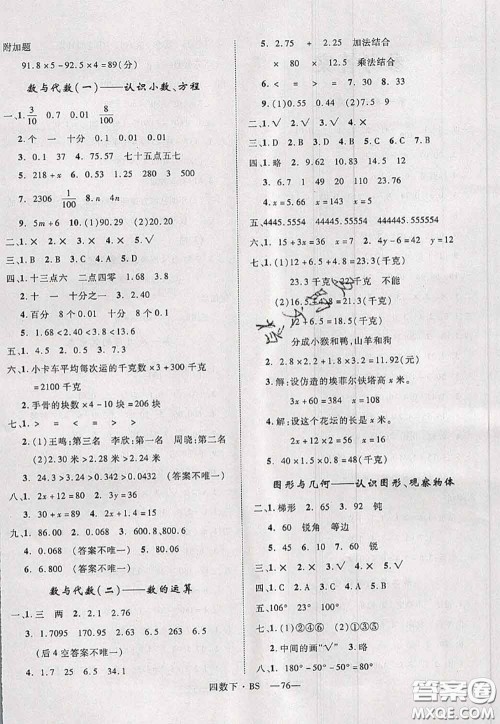 附加题
91.8×5−92.5×4=89(分)
数与代数(一)——认识小数、方程
一、1. 3/10 0.7 0.01 8/100
2. 个 一 十分 0.01 0.01
3. 0.1 37 4. 75.57 七十五点五七
5. 218+x 6. 0.53 1.25 280 353
7. 2306 1/100 8. n 4n
9. 5m+6 10. (1)0.29 (2)0.19
二、1. × 2. × 3. × 4. × 5. √
四、1. 十三点六 二点四零 1.68 3.8
2. 十 百分 0.01 4 0.1
3. 一 十 十分之一 4. 190
4. 百分 8 十分 8 0.11
5. 1.68<2.40<3.18<4.20
五、1. 4.5 2. 23 3. 21
六、1. 小卡车平均每次运的千克数×3+300千克
=2100千克
2. 手骨的块数×4−10块=206块
七、1. > < = >
2. (1)王鸣:第三名 李欣:第一名 周晓:第二名
(2)2.30米>2.24米>2.16米
3. 43.43 43.42 (答案不唯一)
八、1. 2x+12=80 2. 3x+2=110
3. 12x=60 4. 2x+18=180
5. 0.02 (答案不唯一) 5. 80.06
6. 6.800 (答案不唯一)
数与代数(二)——数的运算
一、1. 三 两 2. 2.1 2.76
3. 1.7095 170.95 170.95 0.17095
(后4空答案不唯一)
4. > < = >
5. 2.75 + 2.25 加法结合
80 × 12.5 乘法结合
8. > 9. (1)0.55 (2)0.44
二、1. √ 2. × 3. × 4. × 5. √
三、1. C 2. A 3. B 4. D 5. A
四、1. 略 2. 9.62 14.83 10.23
3. x=8.55 x=143 x=12
4. x=5.66 x=8
五、4445.5554 44445.55554 444445.555554
六、1. 15+3x=36 x=7
2. 4x−36=24 x=15
七、1. (1)12+6.5+4.8=23.3(千克)
23.3千克>22千克 不能
(2)16.5+4.8=21.3(千克)
12+6.5=18.5(千克)
分成小猴和鸭,山羊和狗
2. 2.8×2.9+2.8×1.1=11.2(元)
3. 解:设仿造的埃菲尔铁塔高x米。
3x+60=384 x=108
4. 解:设这个花坛的长是x米。
2x+6=30 x=12
5. 40×0.9+1.5×8=48(千克)
图形与几何——认识图形、观察物体
二、1. 梯形 2. 65 65 3. 90 钝
4. 60 锐角 等边
5. 65 6. 50 7. 60 锐
三、1. × 2. × 3. × 4. √ 5. √
四、1. C 2. A 3. C 4. D 5. C
六、1. 106° 23° 100°
七、1. (1)②④⑥ (2)①③⑤
2. 中间的画“√” 3. 略
八、1. 180°−50°−50°=80°
四数下·BS —76—
答案圈
MXQE.COM